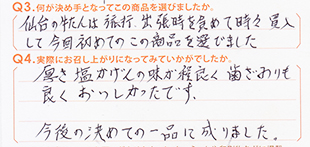 Q3.何が決め手となってこの商品を選びましたか。
仙台の牛たんは旅行、出張時を含めて時々買入
して今回初めてのこの商品を選びました
Q4.実際にお召し上がりになってみていかがでしたか。
厚さ塩かげんの味が程良く歯ざわりも
良くおいしかったです。
今後の決めての一品に成りました。